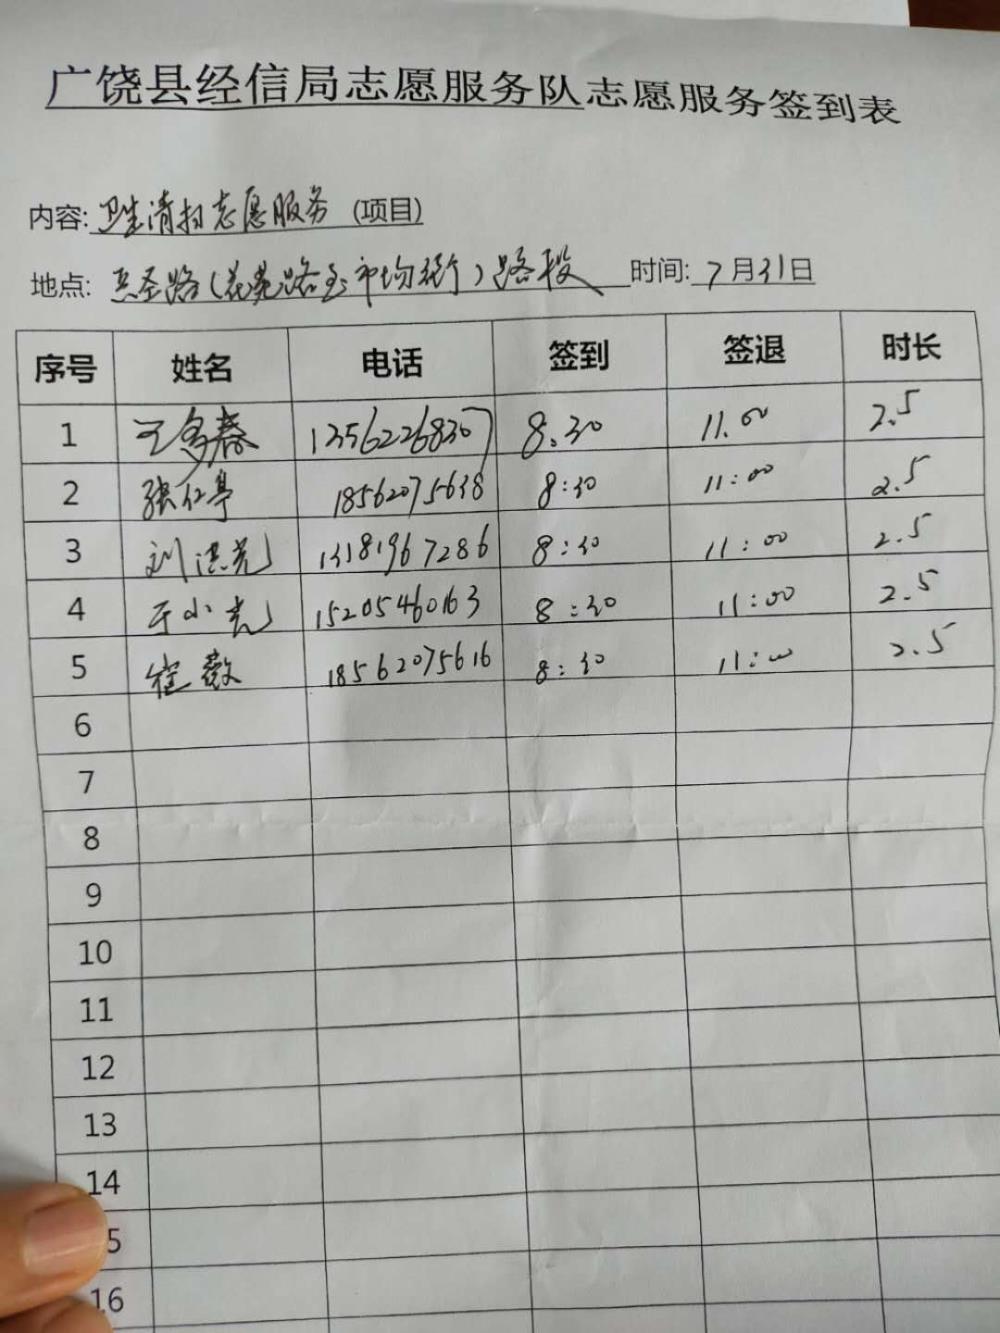 广饶县经信局志愿服务队志愿服务签到表
内容: 卫生清扫志愿服务 (项目)
地点: 兵圣路(花苑路至市场街)路段 时间: 7月31日
序号 姓名 电话 签到 签退 时长
1 王 春 8.30 11.00 2.5
2 张仁亭 18562075638 8:30 11:00 2.5
3 刘洪光 13181967286 8:30 11:00 2.5
4 于小光 15205460163 8:30 11:00 2.5
5 崔薇 18562075616 8:30 11:00 2.5
6
7
8
9
10
11
12
13
14
5
16